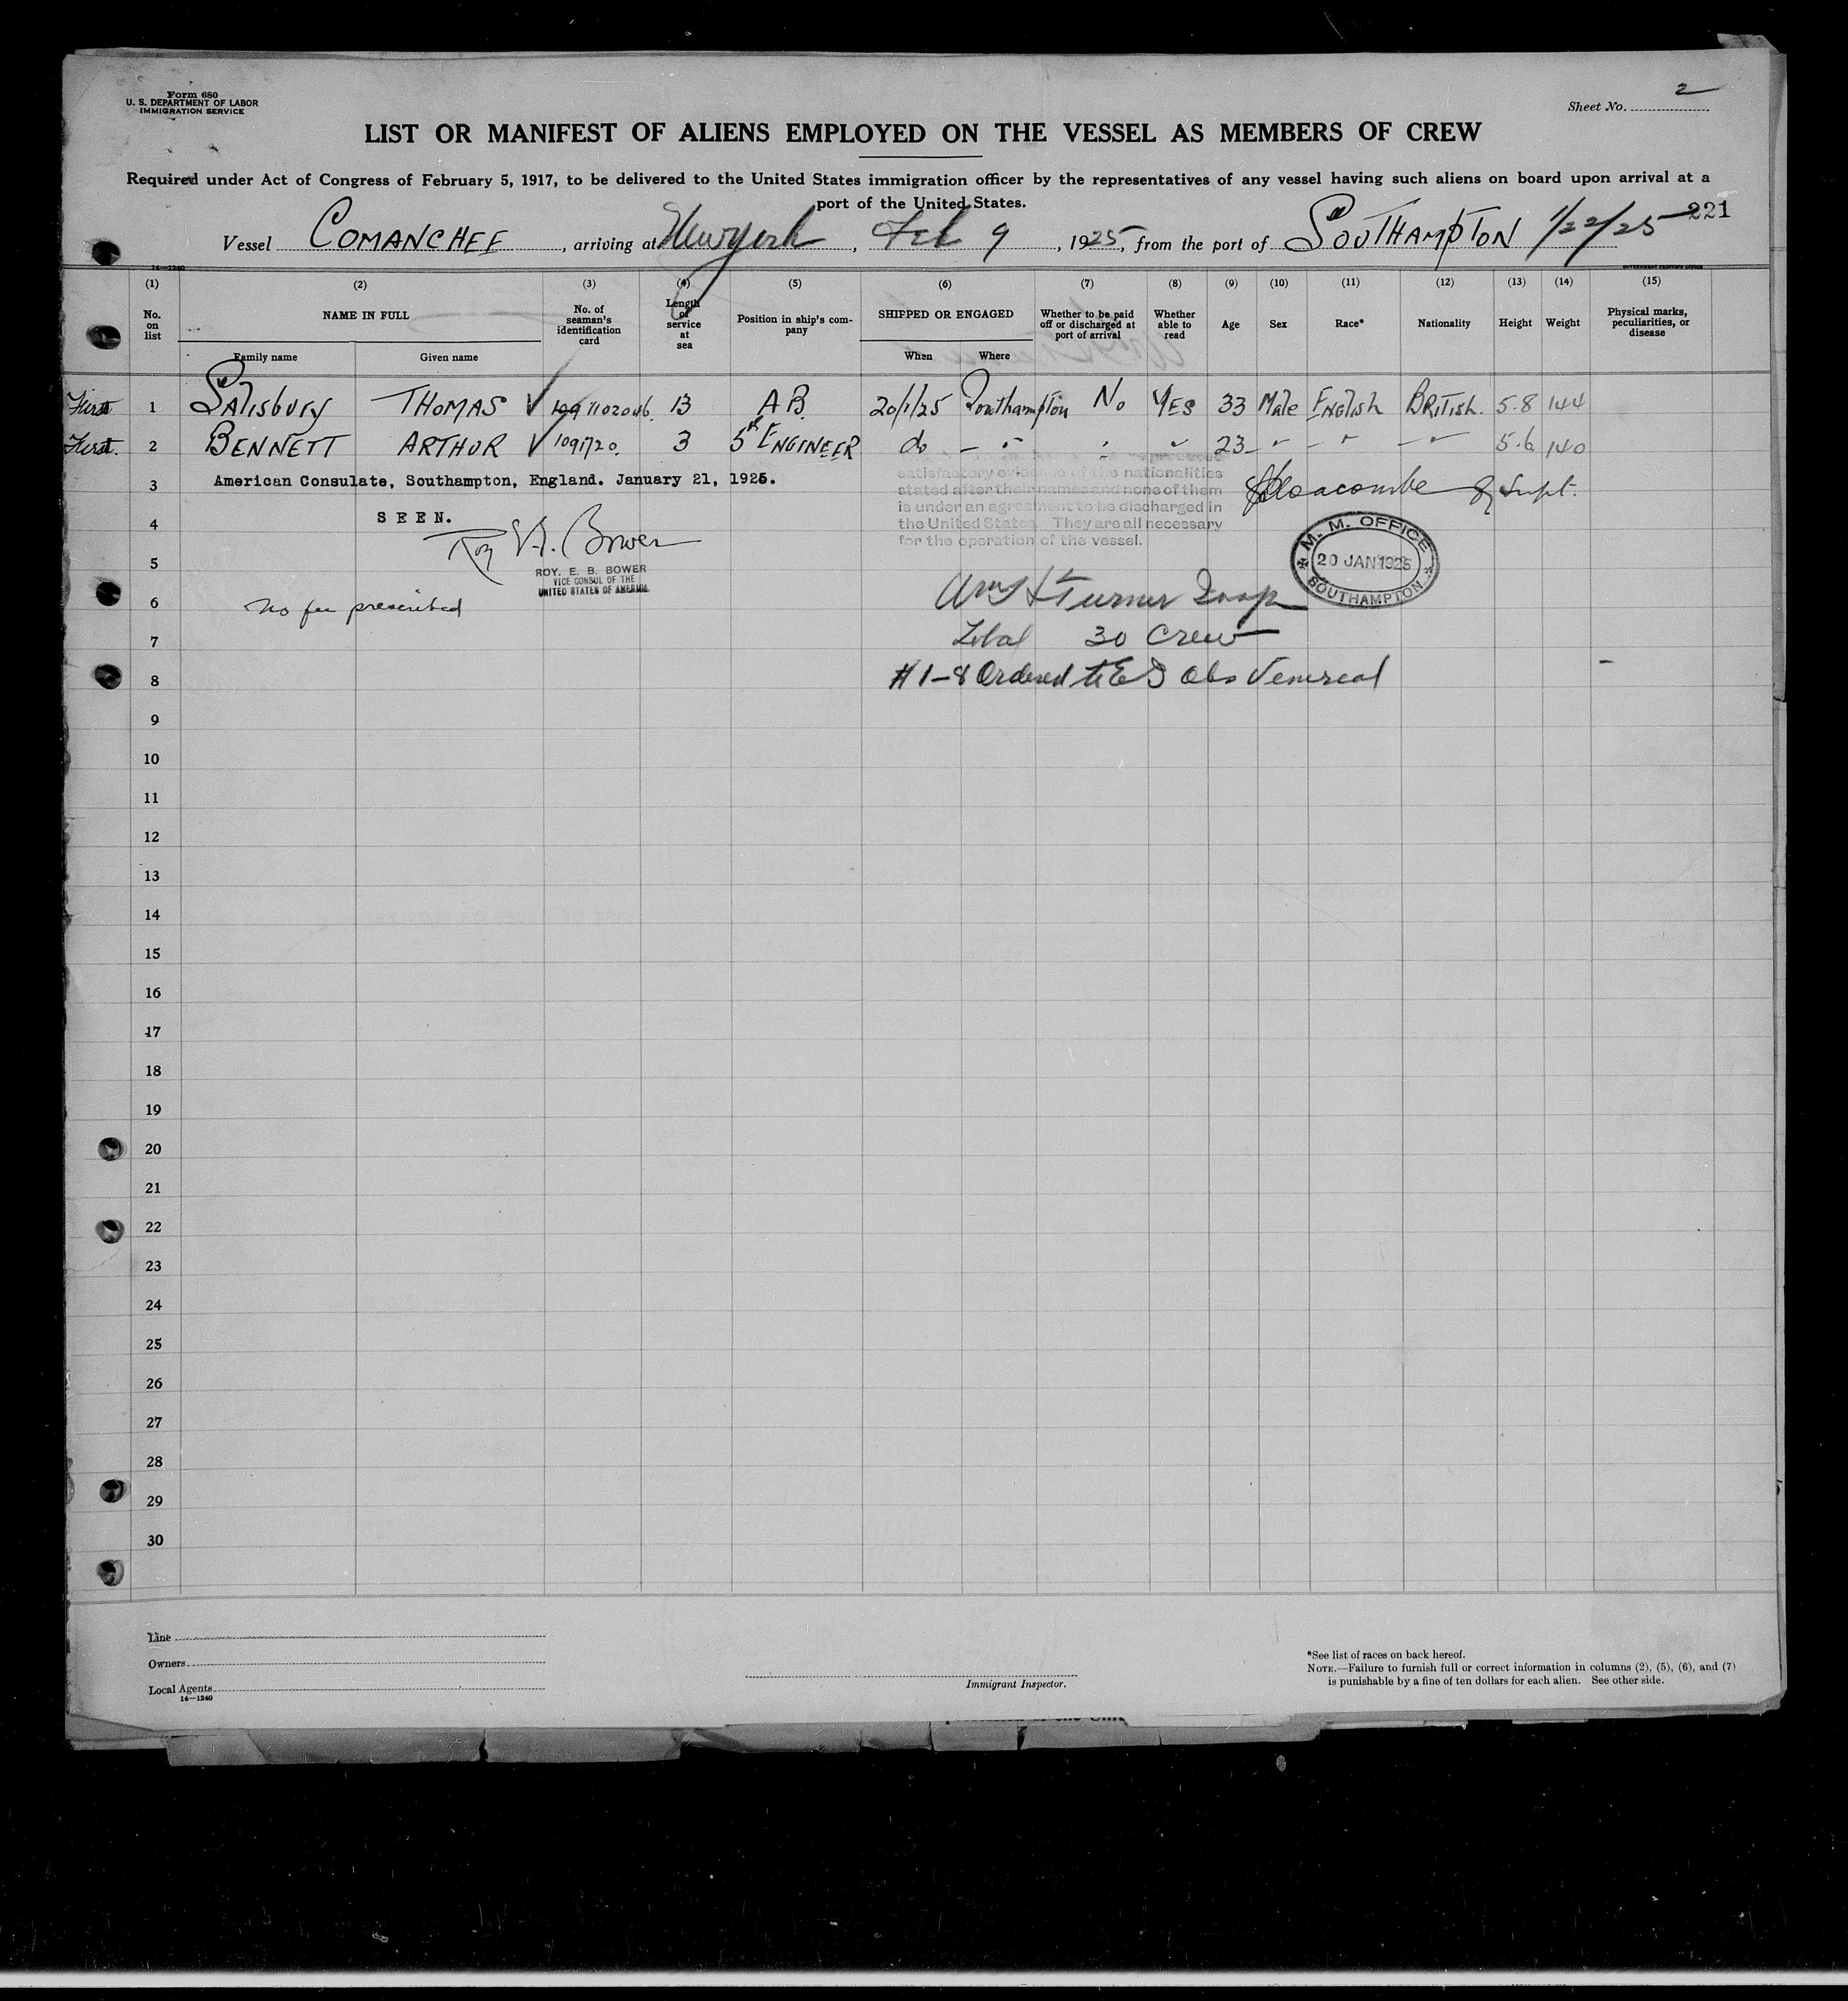 Form 680
U. S. DEPARTMENT OF LABOR
IMMIGRATION SERVICE
Sheet No. 2
LIST OR MANIFEST OF ALIENS EMPLOYED ON THE VESSEL AS MEMBERS OF CREW
Required under Act of Congress of February 5, 1917, to be delivered to the United States immigration officer by the representatives of any vessel having such aliens on board upon arrival at a
port of the United States.
221
Vessel COMANCHEE, arriving at New York, Feb 9, 1925, from the port of SOUTHAMPTON 1/22/25
14—1240
GOVERNMENT PRINTING OFFICE
(1) (2) (3) (4) (5) (6) (7) (8) (9) (10) (11) (12) (13) (14) (15)
No. on list NAME IN FULL No. of seaman's identification card Length of service at sea Position in ship's company SHIPPED OR ENGAGED Whether to be paid off or discharged at port of arrival Whether able to read Age Sex Race* Nationality Height Weight Physical marks, peculiarities, or disease
Family name Given name When Where
First 1 SALISBURY THOMAS 1102046 13 A B. 20/1/25 Southampton No YES 33 Male ENGLISH BRITISH. 5.8 144
First. 2 BENNETT ARTHUR 1091720. 3 5th ENGINEER do - " " " 23 - " - " - " 5.6 140
3 American Consulate, Southampton, England. January 21, 1925.
satisfactory evidence of the nationalities
stated after their names and none of them
is under an agreement to be discharged in
the United States. They are all necessary
for the operation of the vessel.
Supt.
4 SEEN.
M. M. OFFICE
20 JAN 1925
SOUTHAMPTON
5
ROY. E. B. BOWER
VICE CONSUL OF THE
UNITED STATES OF AMERICA
6 No fee prescribed
Turner Insp
7 Total 30 Crew
8 #1-8 Ordered to E I Obs Venereal
9
10
11
12
13
14
15
16
17
18
19
20
21
22
23
24
25
26
27
28
29
30
Line
Owners
Local Agents
14—1240
Immigrant Inspector.
*See list of races on back hereof.
NOTE.—Failure to furnish full or correct information in columns (2), (5), (6), and (7)
is punishable by a fine of ten dollars for each alien. See other side.